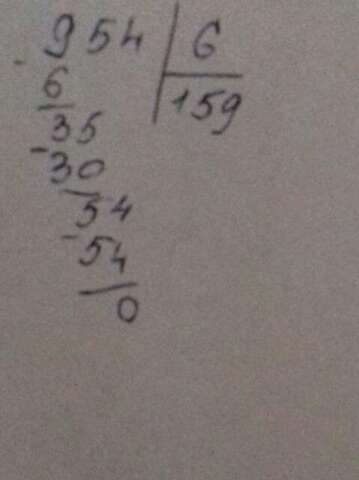 954 | 6
- 6 | 159
35
- 30
54
- 54
0